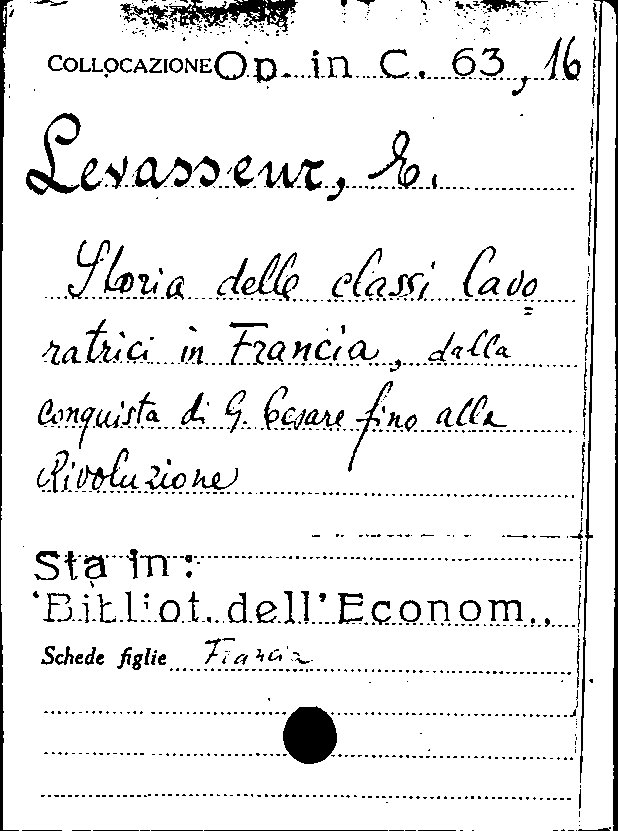 COLLOCAZIONE Op. in C. 63, 16
Levasseur, E.
Storia delle classi lavo=
ratrici in Francia, dalla
conquista di G. Cesare fino alla
Rivoluzione
Sta in:
Bibliot. dell'Econom..
Schede figlie Francia